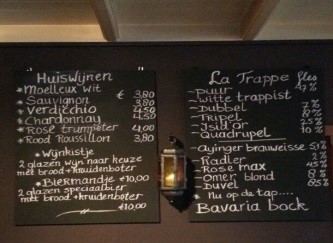 Huiswijnen
* Moelleux wit € 3,80
* Sauvignon 3,80
* Verdicchio 4,50
* Chardonnay 4,50
* Rosé trumpeter 4,00
* Rood Roussillon 3,80
* Wijnkistje
2 glazen wijn naar keuze
met brood + kruidenboter
* Biermandje €10,00
2 glazen speciaalbier
met brood + kruidenboter
€10,00
La Trappe fles
- puur
- witte trappist
- Dubbel 7%
- Tripel 8%
- Isid'or
- Quadrupel 10%
- Ayinger brauweisse
- Radler 2%
- Rosé max
- Omer blond 8%
- Duvel
* Nu op de tap....
Bavaria bock